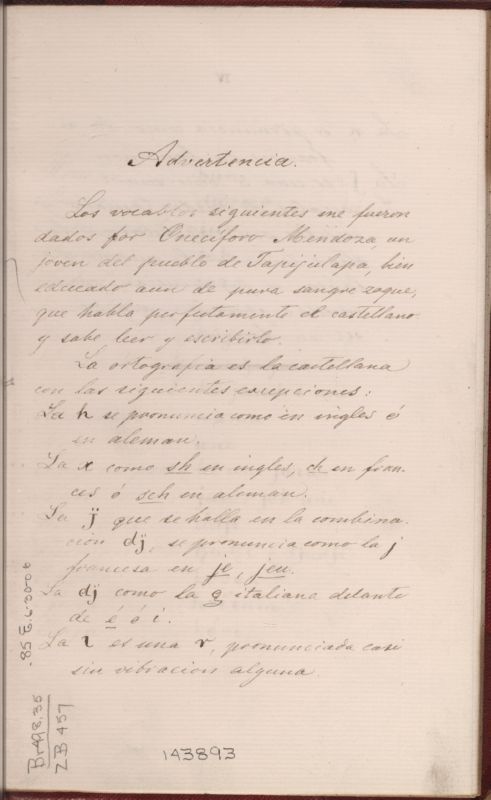 Advertencia.
Los vocablos siguientes me fueron
dados por Onecíforo Mendoza, un
joven del pueblo de Tapijulapa, bien
educado aun de pura sangre zoque,
que habla perfectamente el castellano
y sabe leer y escribirlo.
La ortografía es la castellana
con las siguientes excepciones:
La h se pronuncia como en ingles ó
en aleman.
La x como sh en ingles, ch en fran-
ces ó sch en aleman.
La j̈ que se halla en la combina-
cion dj̈, se pronuncia como la j
francesa en je, jeu.
La dj̈ como la g italiana delante
de é ó i.
La ɩ es una r, pronunciada casi
sin vibracion alguna.
Br498.35
ZB457
143893